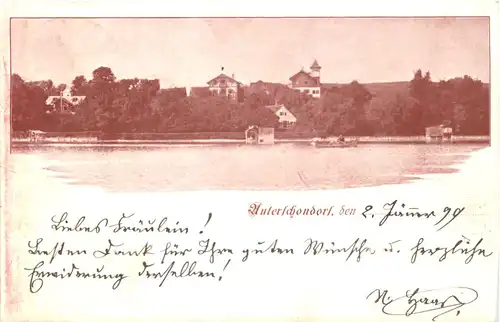 Unterschondorf, den 2. Jänner 99
Liebes Fräulein!
Besten Dank für Ihre guten Wünsche u. herzliche
Erwiderung derselben!
N. Haas